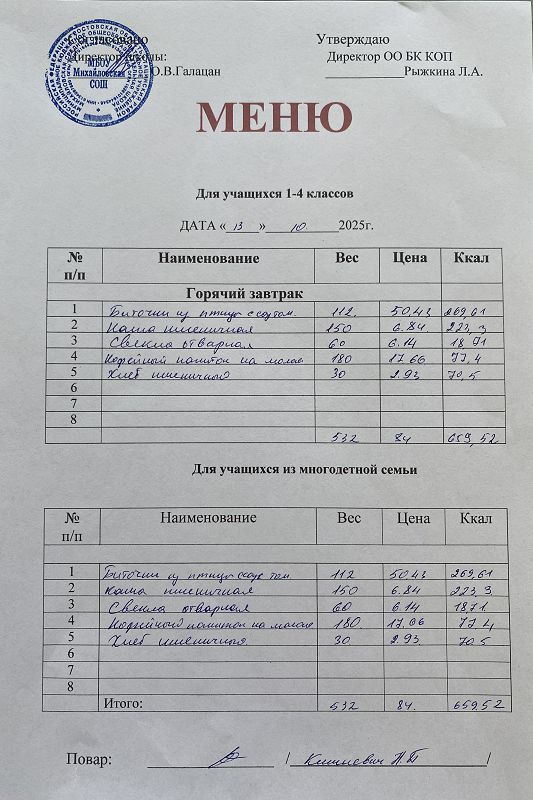 Согласовано Утверждаю
Директор школы: Директор ОО БК КОП
О.В.Галацан ____________Рыжкина Л.А.
МБОУ
Михайловская
СОШ
МЕНЮ
Для учащихся 1-4 классов
ДАТА «13»  10  2025г.
№ п/п Наименование Вес Цена Ккал
Горячий завтрак
1 Биточки из птицы с соус том. 112. 50,43 269,61
2 Каша пшеничная 150 6.84 223,3
3 Свекла отварная 60 6.14 18,71
4 Кофейный напиток на молоке 180 17.66 77,4
5 Хлеб пшеничный 30 2.93 70,5
6
7
8
532 84 659,52
Для учащихся из многодетной семьи
№ п/п Наименование Вес Цена Ккал
1 Биточки из птицы с соус том. 112 50,43 269,61
2 Каша пшеничная 150 6.84 223,3
3 Свекла отварная 60 6.14 18,71
4 Кофейный напиток на молоке 180 17,66 77,4
5 Хлеб пшеничный. 30 2.93. 70,5
6
7
8
Итого: 532 84. 659,52
Повар: / Кишневич Н.Б /